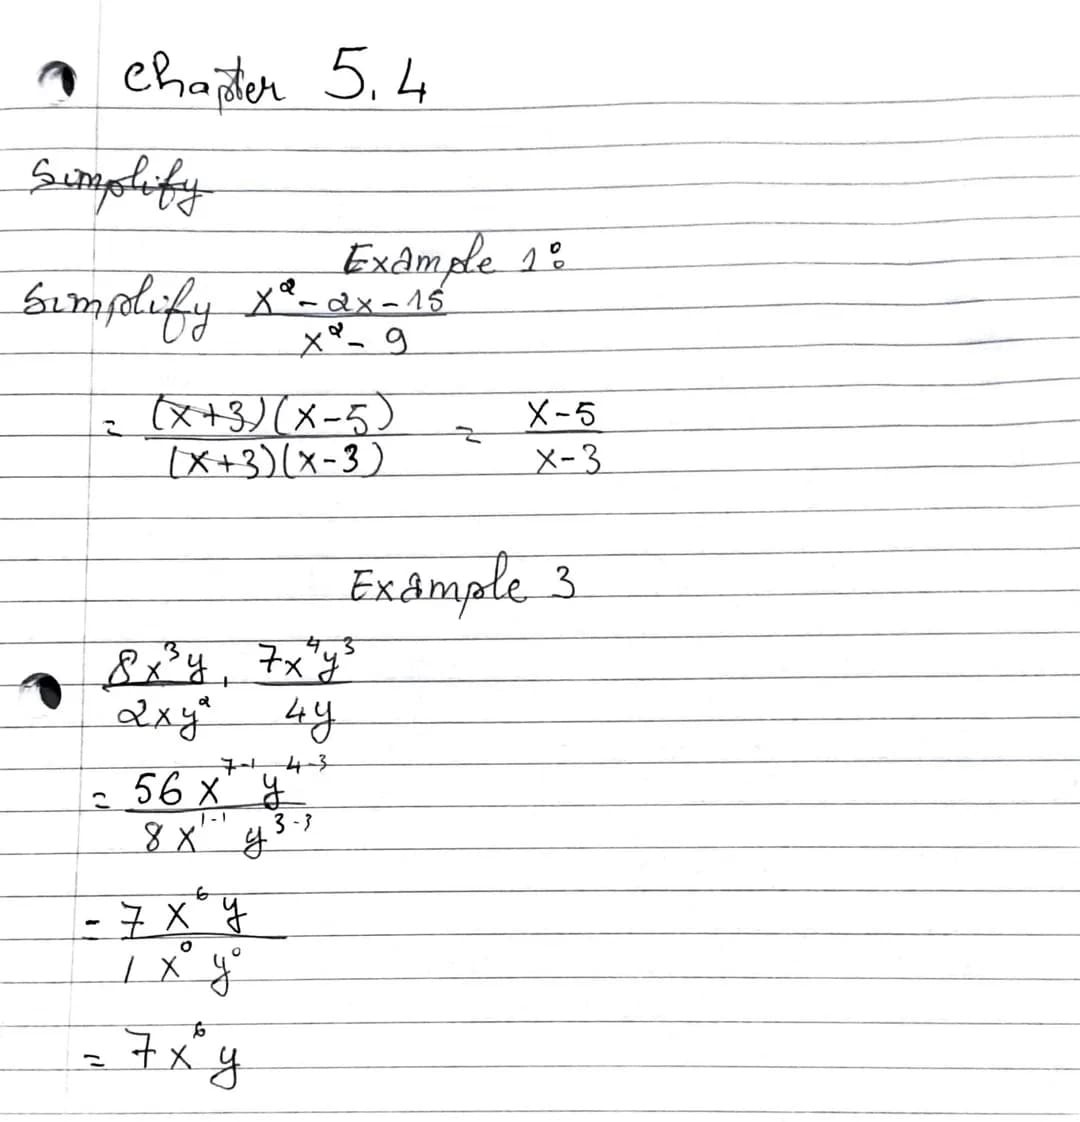 Chapter 5.4
Simplify
Example 1:
Simplify (x² - 2x - 15)/(x² - 9)
= ((x+3)(x-5))/((x+3)(x-3)) = (x-5)/(x-3)
Example 3
(8x³y)/(2xy²) · (7x⁴y³)/(4y)
= (56x⁷⁻¹ y⁴⁻³)/(8x¹⁻¹ y³⁻³)
= (7x⁶y)/(1x⁰y⁰)
= 7x⁶y